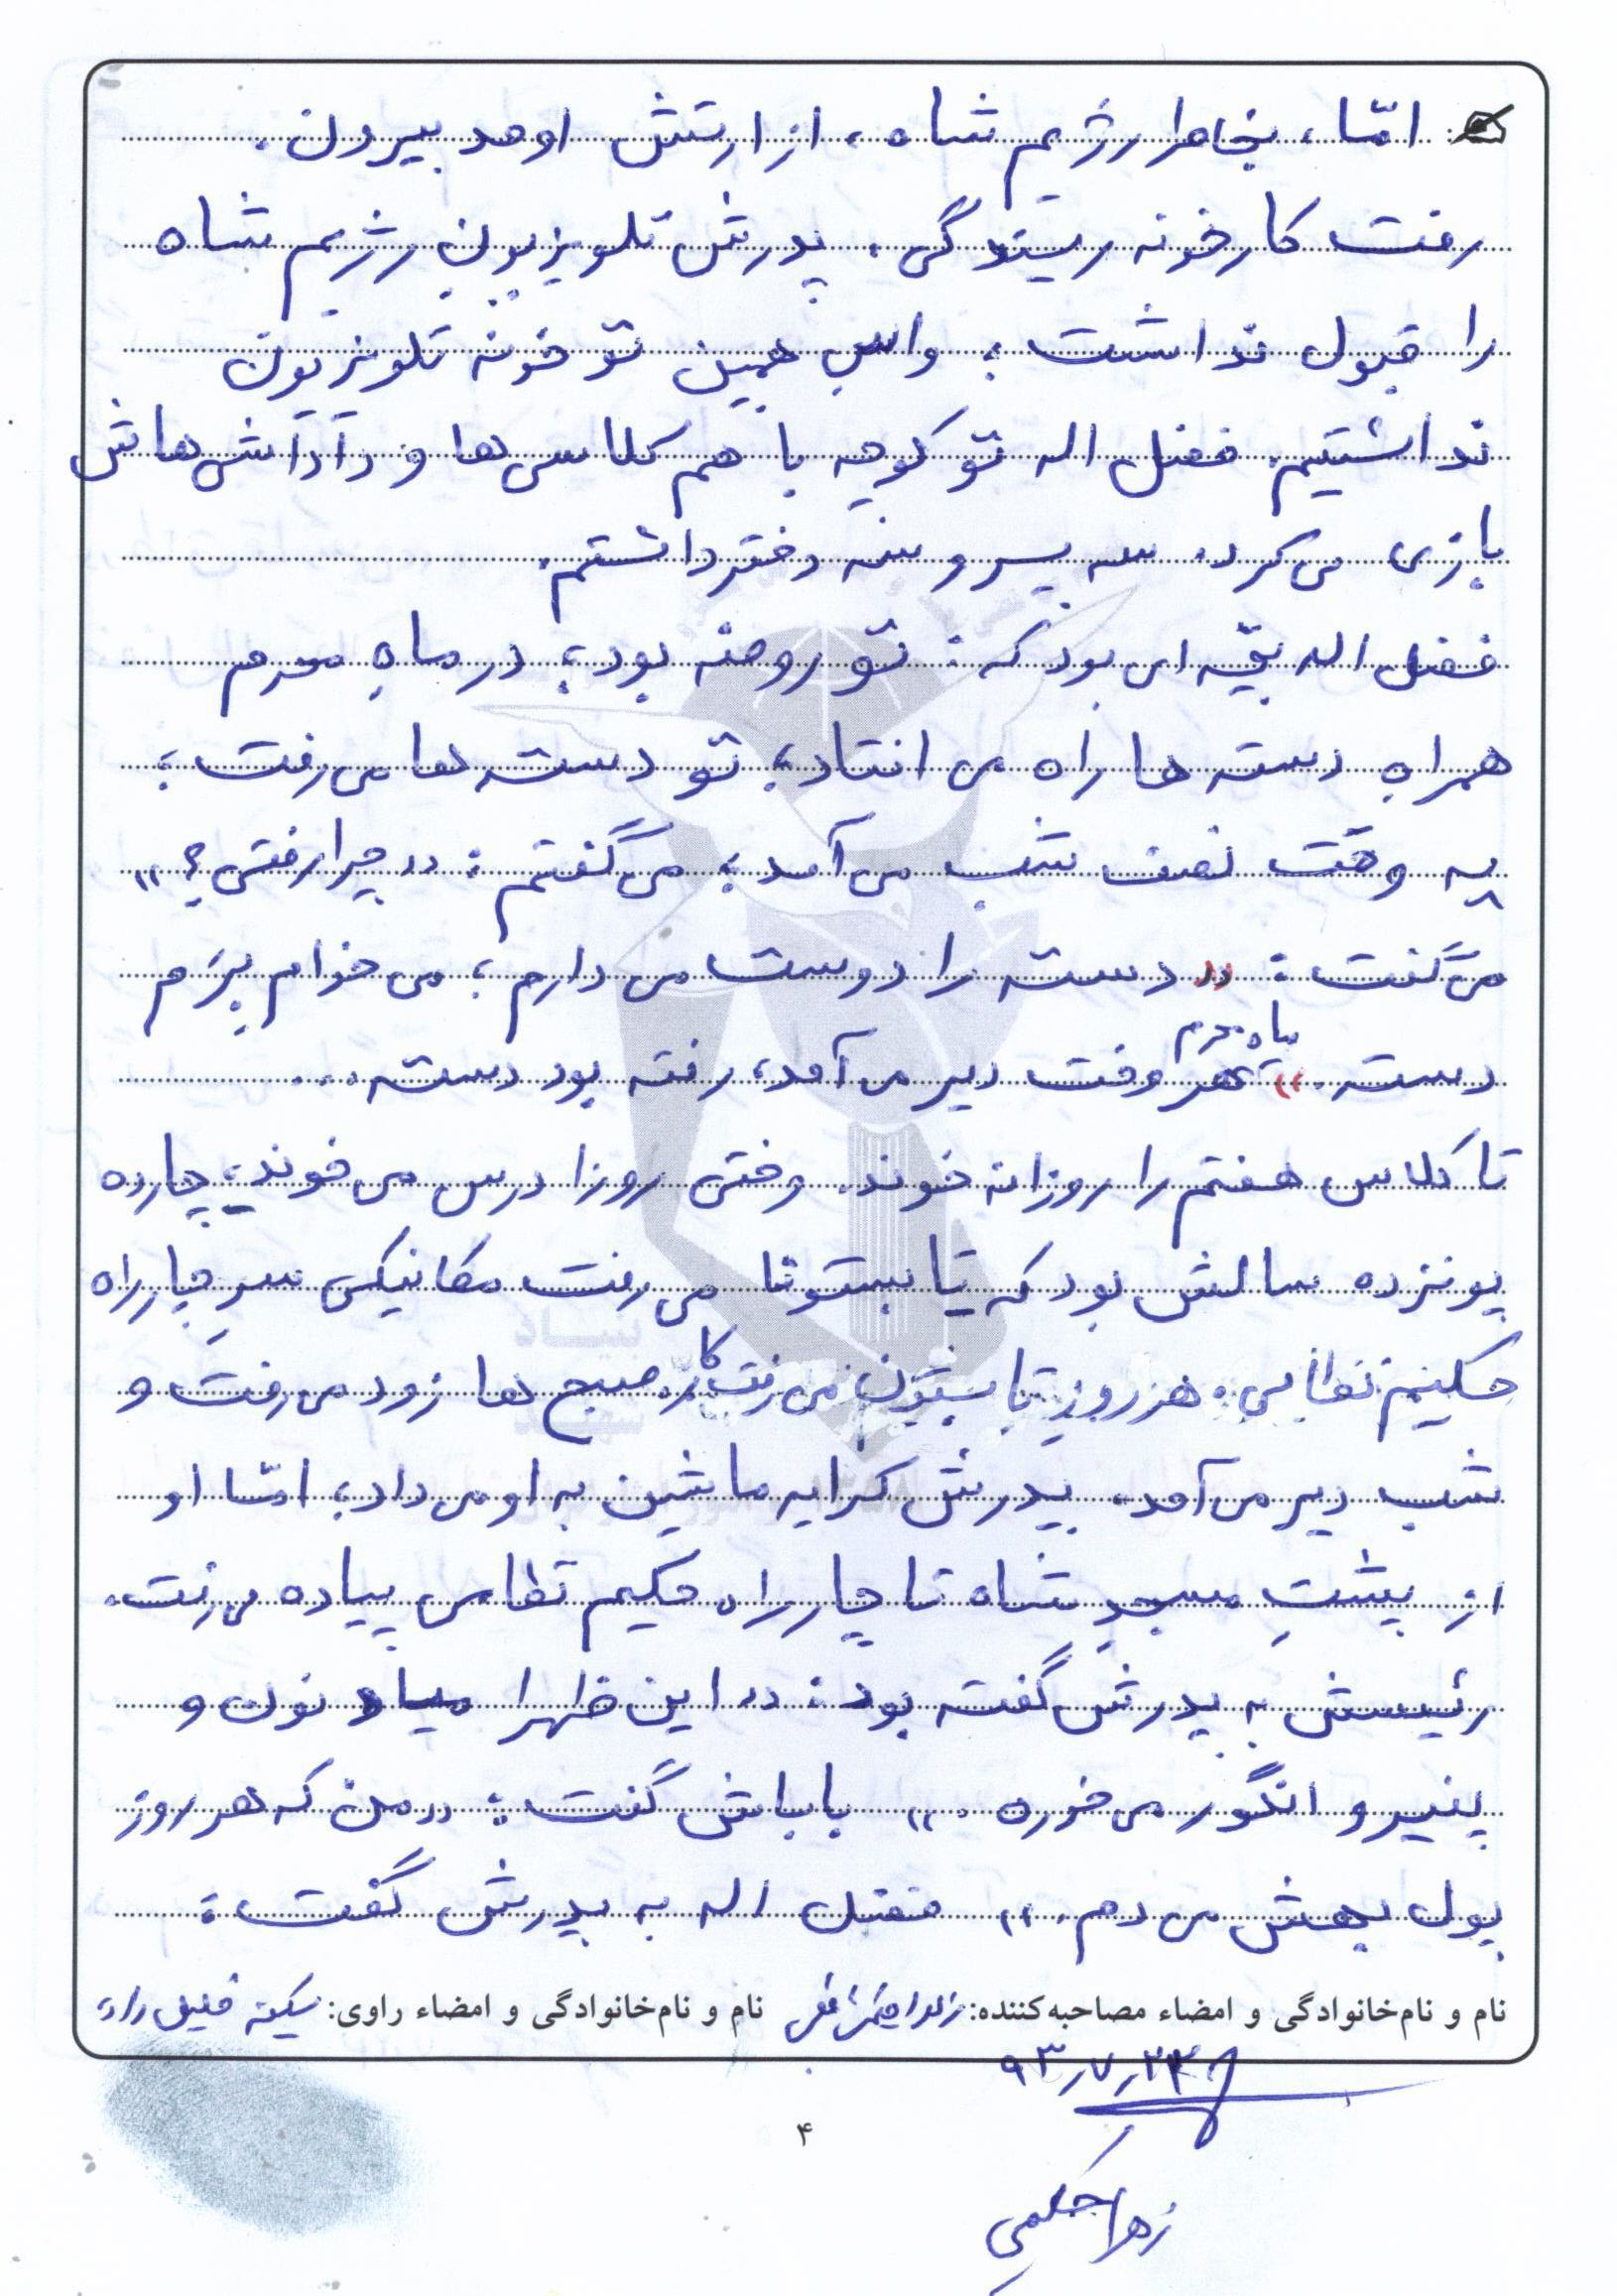 امّا، بخاطر رژیم شاه، از ارتش اومد بیرون.
رفت کارخونه ریسندگی. پدرش تلویزیون رژیم شاه
را قبول نداشت؛ واسِ همین تو خونه تلویزیون
نداشتیم. فضل اله تو کوچه با هم کلاسی‌ها و داداش‌هاش
بازی می‌کرد. سه پسر و سه دختر داشتم.
فضل اله بچّه‌ای بود که: تو روضه بود؛ در ماهِ محرم
همراهِ دسته ها راه می افتاد؛ تو دسته ها می‌رفت؛
یه وقت نصف شب می‌آمد؛ می‌گفتم: «چرا رفتی؟»
می‌گفت: «دسته را دوست می دارم؛ می خوام بِرَم
دسته.» ماه محرم هر وقت دیر می‌آمد، رفته بود دسته...
تا کلاس هفتم را روزانه خوند. وقتی روزا درس می خوند؛ چارده
پونزده سالش بود که تابستونا می‌رفت مکانیکی سرِ چارراه
حکیم نظامی. هر روزِ تابستون می‌رفت کار. صبح ها زود می‌رفت و
شب دیر می‌آمد. پدرش کرایه ماشین به او می داد؛ امّا او
از پشتِ مسجدِ شاه تا چارراه حکیم نظامی پیاده می‌رفت.
رئیسش به پدرش گفته بود: «این ظهرا میاد نون و
پنیر و انگور می خوره.» باباش گفت: «من که هر روز
پول بهش می دم.» فضل اله به پدرش گفت:
نام و نام‌خانوادگی و امضاء مصاحبه‌کننده: نام و نام‌خانوادگی و امضاء راوی: سکینه
۹۳/۷/۲۳
۴
زهرا حکیمی